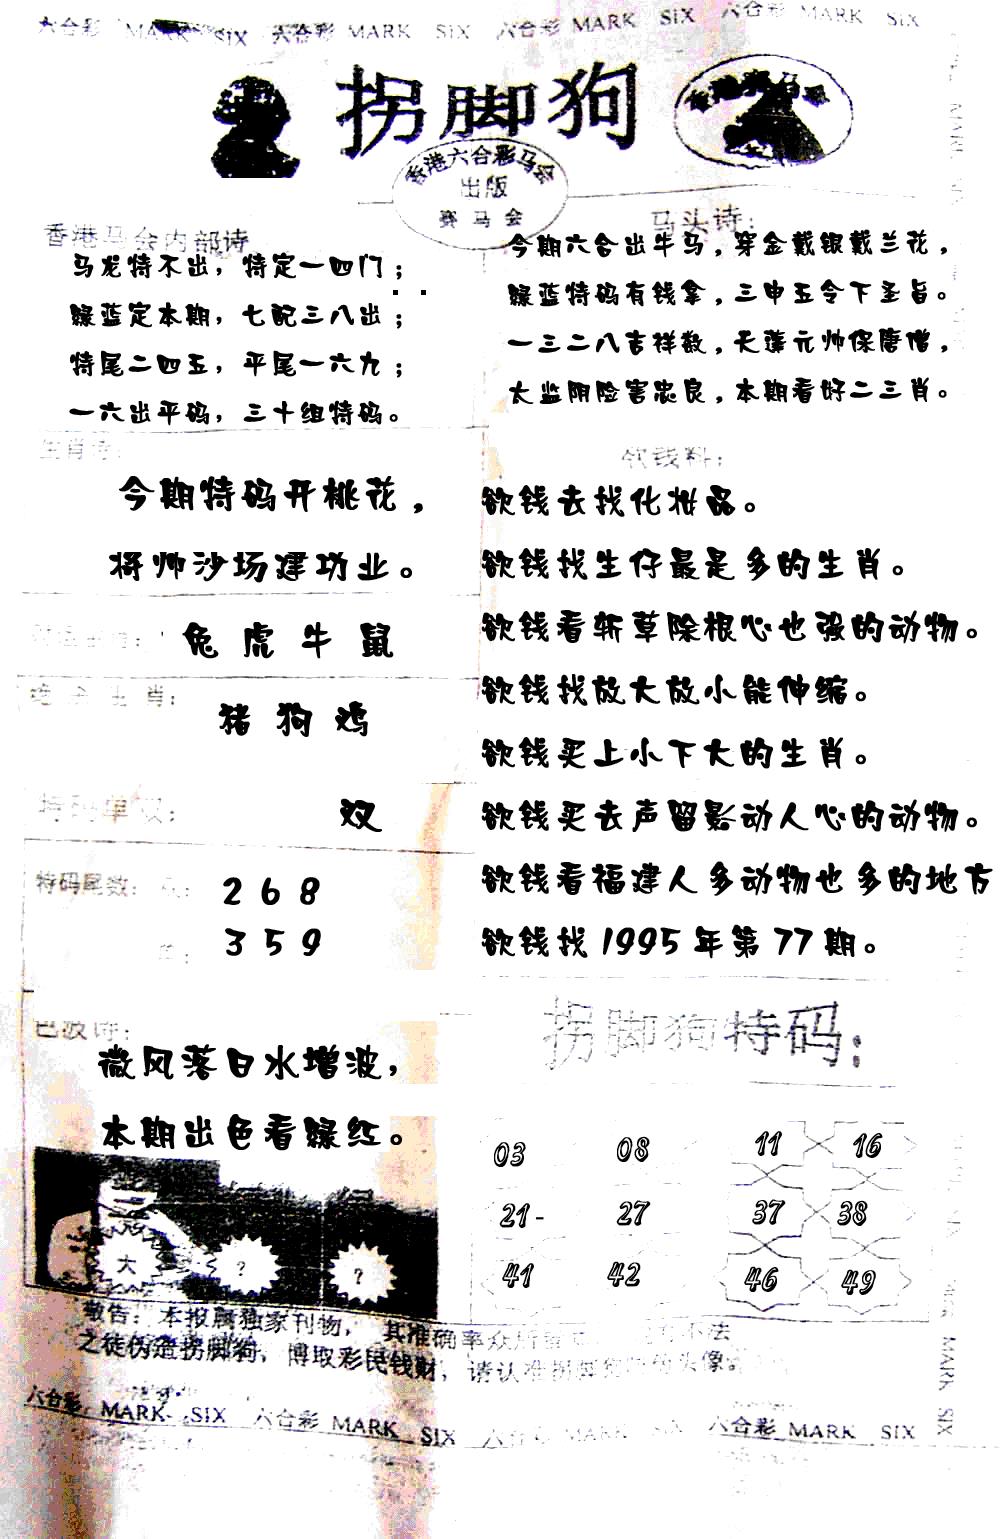 六合彩 MARK SIX 六合彩 MARK SIX 六合彩 MARK SIX 六合彩 MARK SIX
拐脚狗
香港六合彩马会
出版
赛马会
香港赛马会
香港马会内部诗
马龙特不出，特定一四门；
绿蓝定本期，七配三八出；
特尾二四五，平尾一六九；
一六出平码，三十组特码。
马头诗：
今期六合出牛马，穿金戴银戴兰花，
绿蓝特码有钱拿，三申五令下圣旨。
一三二八吉祥数，天蓬元帅保唐僧，
太监阴险害忠良，本期看好二三肖。
生肖诗：
今期特码开桃花，
将帅沙场建功业。
兔虎牛鼠
绝杀生肖：
猪狗鸡
特码单双：
双
特码尾数：
2 6 8
3 5 9
色波诗：
微风落日水增波，
本期出色看绿红。
欲钱料：
欲钱去找化妆品。
欲钱找生仔最是多的生肖。
欲钱看斩草除根心也强的动物。
欲钱找放大放小能伸缩。
欲钱买上小下大的生肖。
欲钱买去声留影动人心的动物。
欲钱看福建人多动物也多的地方
欲钱找1995年第77期。
拐脚狗特码：
03 08 11 16
21- 27 37 38
41 42 46 49
大 ？ ？
敬告：本报属独家刊物，其准确率众所 不法
之徒伪造拐脚狗，博取彩民钱财，请认准拐脚狗 头像
六合彩 MARK SIX 六合彩 MARK SIX 六合彩 MARK SIX 六合彩 MARK SIX
MARK SIX